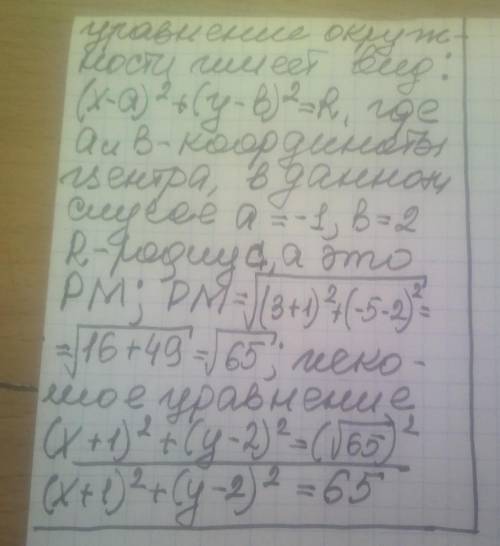 уравнение окруж-
ности имеет вид:
(x-a)²+(y-b)²=R, где
a и b-координаты
центра, в данном
случае a=-1, b=2
R-радиус, а это
PM; PM=√(3+1)²+(-5-2)²=
=√16+49=√65; иско-
мое уравнение
(x+1)²+(y-2)²=(√65)²
(x+1)²+(y-2)²=65